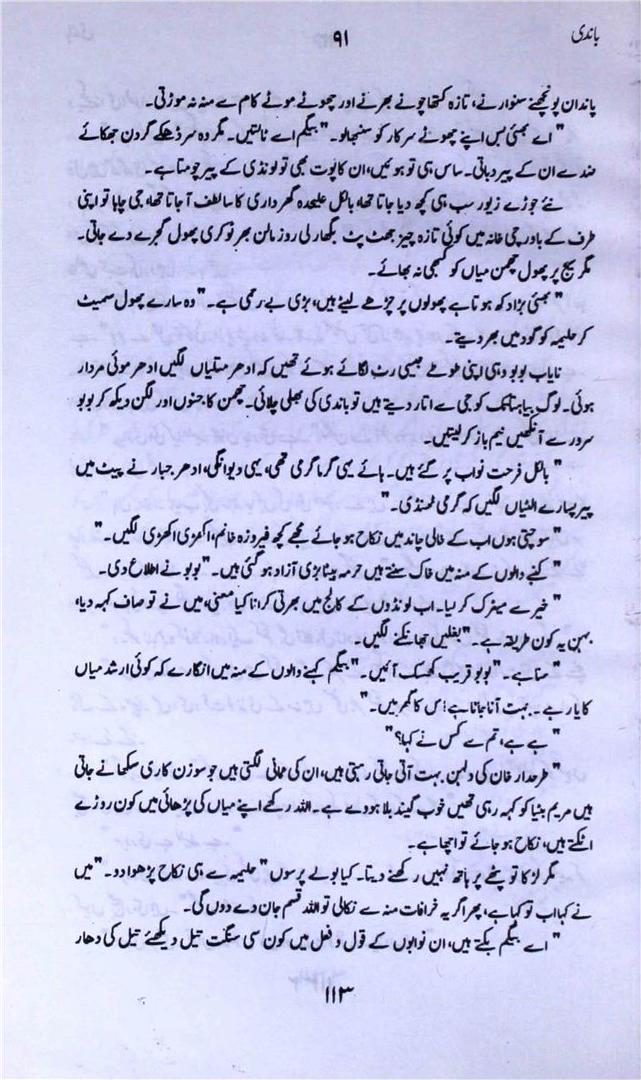 باندی
۹۱
پاندان پونچھنے سنوارنے، تازہ کتھا چونے بھرنے اور چھوٹے موٹے کام سے منہ نہ موڑتی۔
"اے بھئی بس اپنے چھوٹے سرکار کو سنبھالو۔" بیگم اے ٹالتیں۔ مگر وہ سر ڈھکے گردن جھکائے
مندے ان کے پیر دباتی۔ ساس ہی تو ہوئیں، ان کا پوت بھی تو لونڈی کے پیر چومتا ہے۔
نئے جوڑے زیور سب ہی کچھ دیا جاتا تھا، بالکل علیحدہ گھرداری کا سا لطف آ جاتا تھا، جی چاہا تو اپنی
طرف کے باورچی خانہ میں کوئی تازہ چیز جھٹ پٹ بگھار لی روز مالن بھر ٹوکری پھول گجرے دے جاتی۔
مگر سیج پر پھول چھمن میاں کو کبھی نہ بھائے۔
"بھئی بڑا دکھ ہوتا ہے پھولوں پر چڑھے لیٹے ہیں، بڑی بے رحمی ہے۔" وہ سارے پھول سمیٹ
کر حلیمہ کو گود میں بھر دیتے۔
نایاب بوبو وہی اپنی طوطے جیسی رٹ لگائے ہوئے تھیں کہ ادھر متلیاں لگیں ادھر موئی مردار
ہوئی۔ لوگ بیاہتا تک کو جی سے اتار دیتے ہیں تو باندی کی بھلی چلائی۔ چھمن کا جنون اور لگن دیکھ کر بوبو
سرور سے آنکھیں نیم باز کر لیتیں۔
"بالکل فرحت نواب پر گئے ہیں۔ ہائے یہی گرما گرمی تھی، یہی دیوانگی، ادھر جبار نے پیٹ میں
پیر پسارے الٹیاں لگیں کہ گرمی ٹھنڈی۔"
"سوچتی ہوں اب کے خالی چاند میں نکاح ہو جائے مجھے کچھ فیروزہ خانم، اکھڑی اکھڑی لگیں۔"
"کہنے والوں کے منہ میں خاک سنتے ہیں حرمہ بیٹا بڑی آزاد ہو گئی ہیں۔" بوبو نے اطلاع دی۔
"خیر سے میٹرک کر لیا۔ اب لونڈوں کے کالج میں بھرتی کرانا کیا معنی، میں نے تو صاف کہہ دیا،
بہن یہ کون طریقہ ہے۔" بغلیں جھانکنے لگیں۔
"سنا ہے۔" بوبو قریب کھسک آئیں۔ "بیگم کہنے والوں کے منہ میں انگارے کہ کوئی ارشد میاں
کا یار ہے۔ بہت آنا جانا ہے اس کا گھر میں۔"
"ہے ہے، تم سے کس نے کہا؟"
"طرحدار خان کی دلہن بہت آتی جاتی رہتی ہیں، ان کی ممانی لگتی ہیں جو سوزن کاری سکھانے جاتی
ہیں مریم بٹیا کو کہہ رہی تھیں خوب گیند بلا ہووے ہے۔ اللہ رکھے اپنے میاں کی پڑھائی میں کون روڑے
اٹکتے ہیں، نکاح ہو جائے تو اچھا ہے۔
مگر لڑکا تو پٹھے پر ہاتھ نہیں رکھنے دیتا۔ کیا بولے پرسوں "حلیمہ سے ہی نکاح پڑھوا دو۔" میں
نے کہا اب تو کہا ہے، پھر اگر یہ خرافات منہ سے نکالی تو اللہ قسم جان دے دوں گی۔
"اے بیگم بکتے ہیں، ان نوابوں کے قول و فعل میں کون سی سنگت تیل دیکھئے تیل کی دھار
۱۱۳